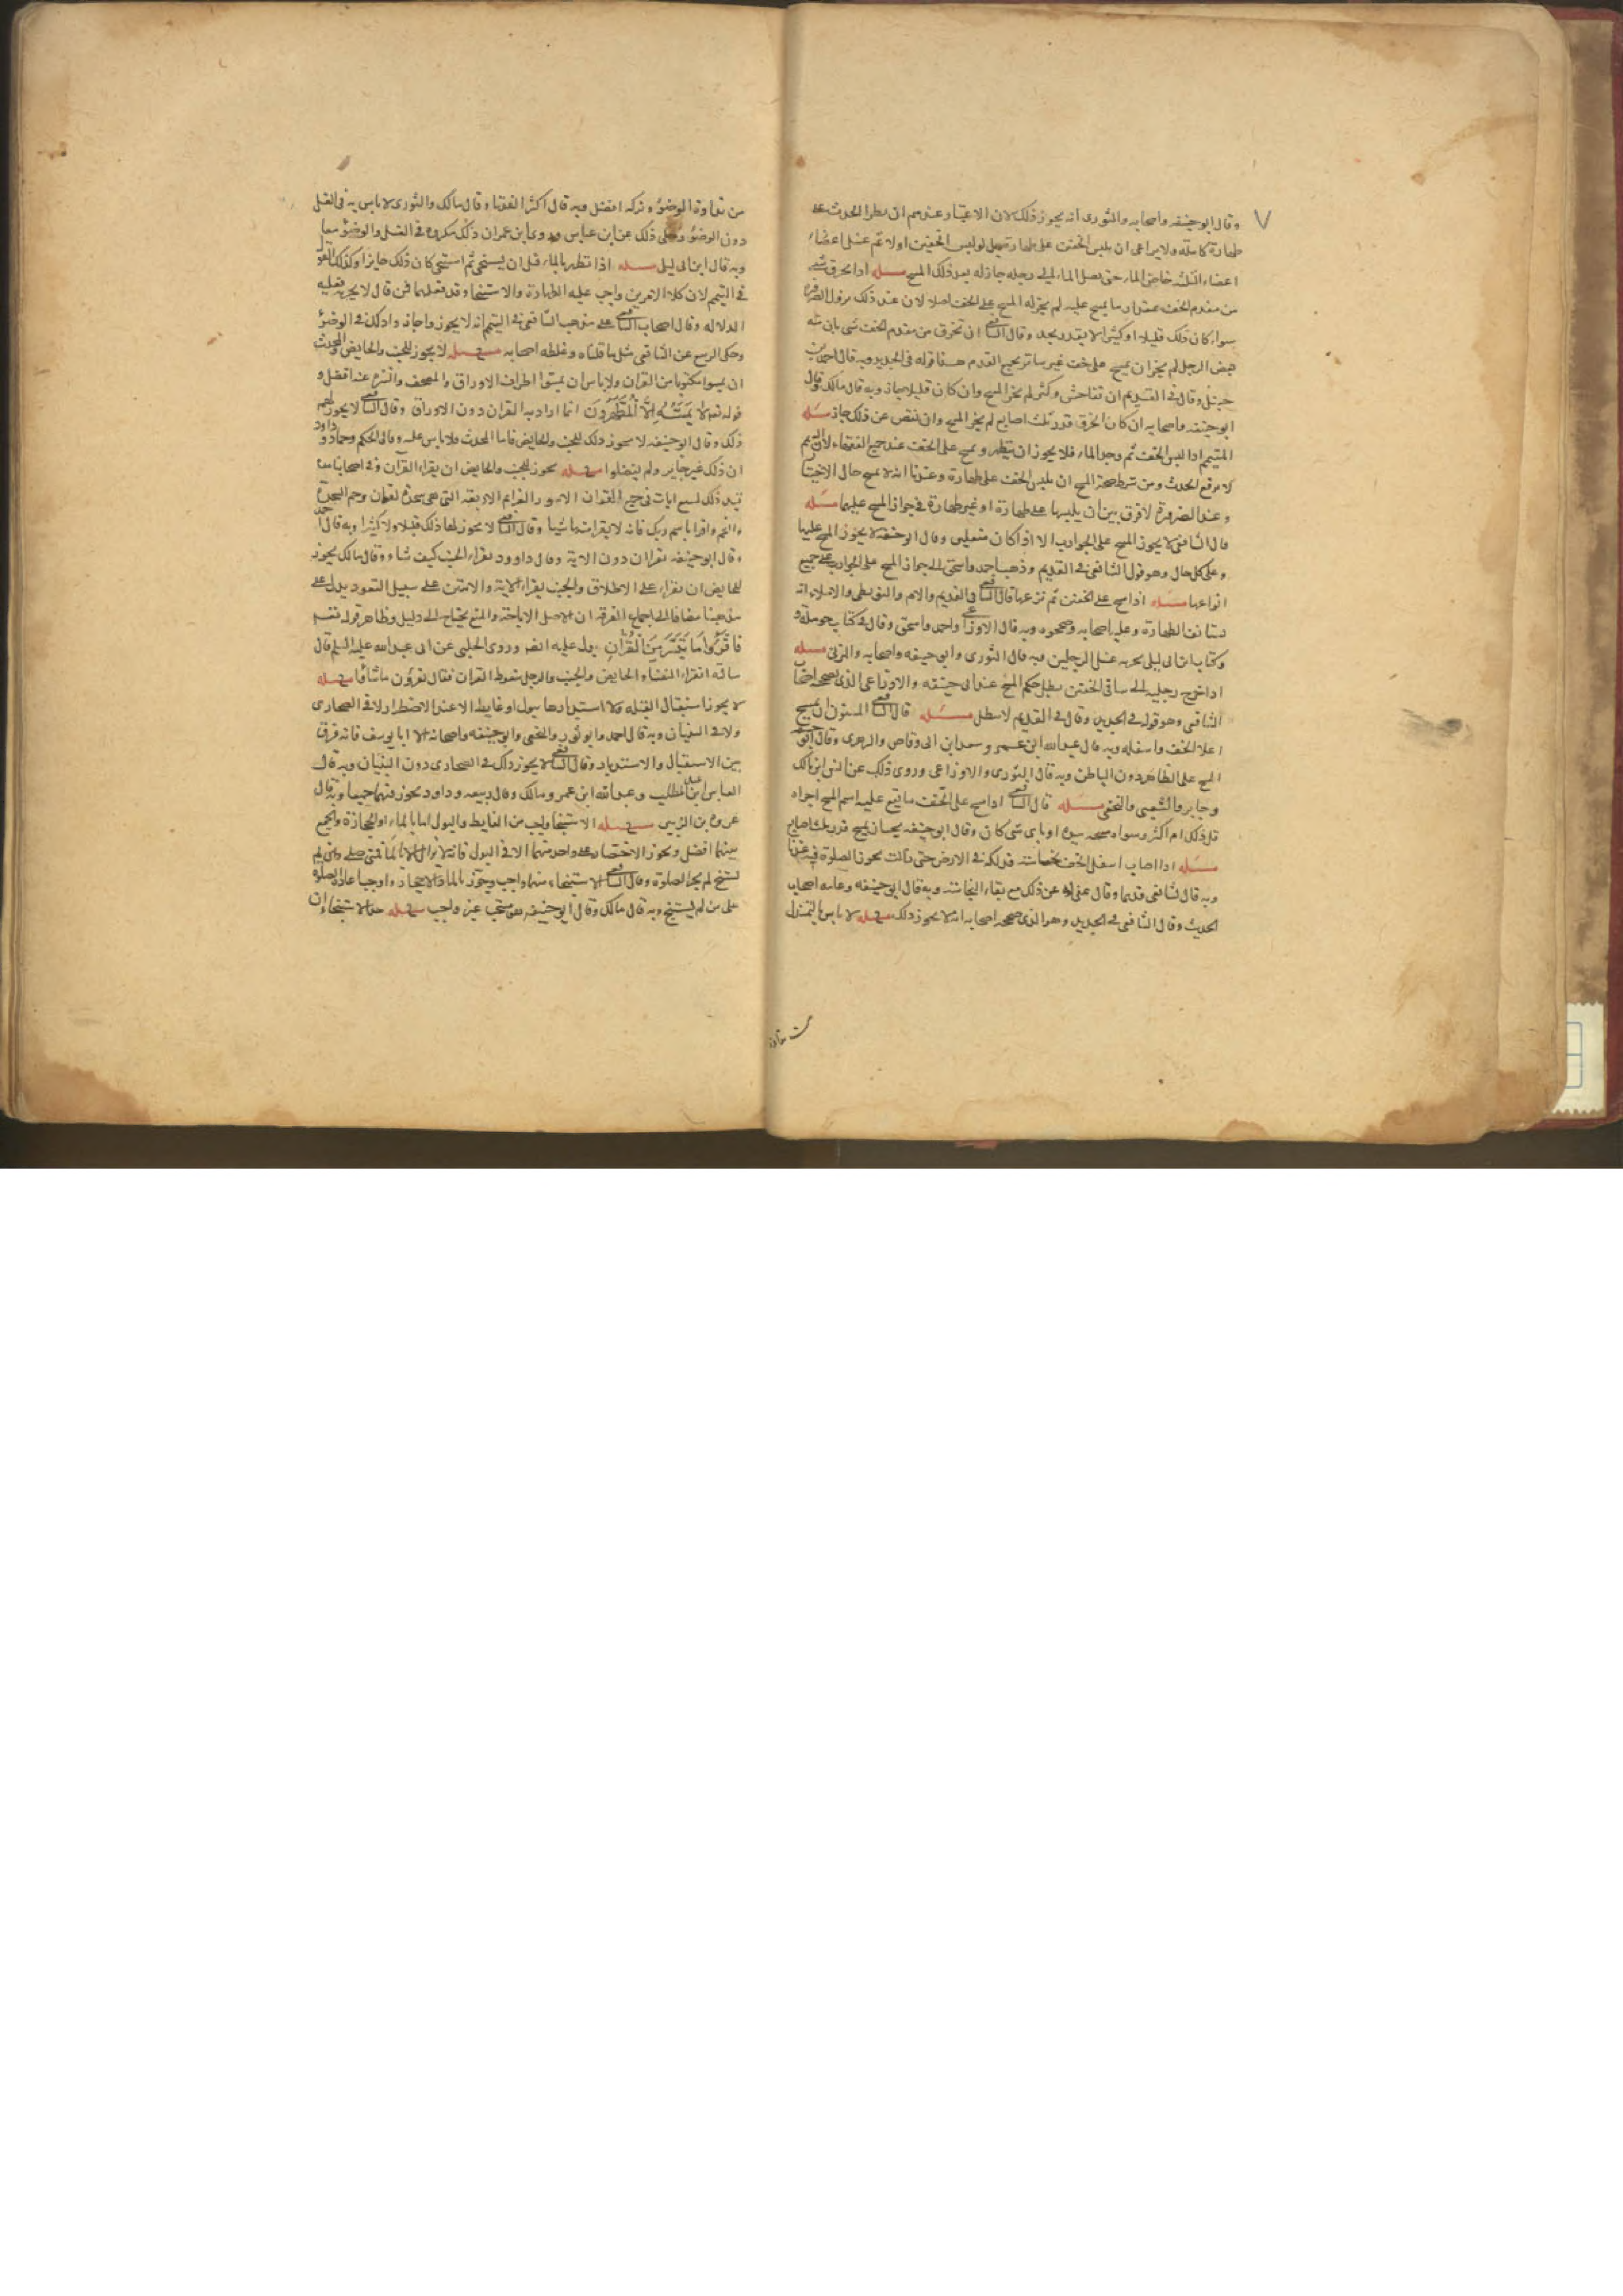 ٧
وقال ابو حنيفه واصحابه والثورى انه يجوز ذلك لان الاعتبار عندهم ان يطرا الحدث على
طهارة كاملة ولا يراعى ان يلبس الخفين على طهارة بل لو لبس الخفين اولا ثم غسل اعضاء
اعضاء الثلثه خاض الماء حتى يصل الماء الى رجليه جاز له بعد ذلك المسح مسله اذا تخرق شى
من مقدم الخف بمقدار ما يمسح عليه لم يجز له المسح على الخف اصلا لان عند ذلك يزول الضرورة
سواء كان ذلك قليلا او كثيرا لا يقدر بحد وقال الشافعى ان تخرق من مقدم الخف شى بان منه
بعض الرجل لم يجز ان يمسح على خف غير ساتر لجميع القدم هذا قوله فى الجديد وبه قال احمد بن
حنبل وقال فى القديم ان تفاحش وكثر لم يجز المسح وان كان قليلا جاز وبه قال مالك وقال
ابو حنيفه واصحابه ان كان الخرق قدر ثلث اصابع لم يجز المسح وان نقص عن ذلك جاز مسله
المتيمم اذا لبس الخف ثم وجد الماء فلا يجوز ان يتطهر ويمسح على الخف عند جميع الفقهاء لان التيمم
لا يرفع الحدث ومن شرط صحة المسح ان يلبس الخف على طهارة وعندنا انه لا يمسح حال الاختيار
وعند الضرورة لا فرق بين ان يلبسها على طهارة او غير طهارة فى جواز المسح عليهما مسله
قال الشافعى لا يجوز المسح على الجوارب الا اذا كان منعلين وقال ابو حنيفه لا يجوز المسح عليها
وعلى كل حال وهو قول الشافعى فى القديم وذهب احمد واسحق الى جواز المسح على الجوارب على جميع
انواعها مسله اذا مسح على الخفين ثم نزعها قال الشافعى فى القديم والام والبويطى والاملاء انه
يستانف الطهارة وعليه اصحابه وصححوه وبه قال الاوزاعى واحمد واسحق وقال فى كتاب حرمله و
وكتاب ابن ابى ليلى يجزيه غسل الرجلين وبه قال الثورى وابى حنيفه واصحابه والمزنى مسله
اذا اخرج رجليه الى ساقى الخفين بطل حكم المسح عند ابى حنيفه والاوزاعى الذى يصححه اصحاب
الشافعى وهو قوله فى الجديد وقال فى القديم لا يبطل مسله قال الشافعى المسنون ان يمسح
اعلا الخف واسفله وبه قال عبدالله ابن عمر وسعد ابن ابى وقاص والزهرى وقال ابو حنيفه
المسح على الظاهر دون الباطن وبه قال الثورى والاوزاعى وروى ذلك عن انس ابن مالك
وجابر والشعبى والنخعى مسله قال الشافعى اذا مسح على الخف ما يقع عليه اسم المسح اجزاه
قل ذلك ام اكثر وسواء مسحه بيده او باى شى كان وقال ابو حنيفه يجب ان يمسح قدر ثلث اصابع
مسله اذا اصاب اسفل الخف نجاسة فدلكه فى الارض حتى زالت يجوز الصلوة فيه عندنا
وبه قال الشافعى قديما وقال عفى له عن ذلك مع بقاء النجاسة وبه قال ابو حنيفه وعامه اصحاب
الحديث وقال الشافعى فى الجديد وهو الذى صححه اصحابه انه لا يجوز ذلك مسله لا باس بالتمندل
من نداوة الوضوء وتركه افضل وبه قال اكثر الفقهاء وقال مالك والثورى لا باس به فى الغسل
دون الوضوء وحكى ذلك عن ابن عباس وروى ابن عمر ان ذلك مكروه فى الغسل والوضوء معا
وبه قال ابن ابى ليلى مسله اذا تطهر بالماء قبل ان يستنجى ثم استنجى كان ذلك جايزا وكذلك القول
فى التيمم لان كلا الامرين واجب عليه الطهارة والاستنجاء وقد فعلهما فمن قال لا يجزيه فعليه
الدلاله وقال اصحاب الشافعى على مذهب الشافعى فى التيمم انه لا يجوز واجازوا ذلك فى الوضوء
وحكى الربيع عن الشافعى مثل ما قلناه وغلطه اصحابه مسله لا يجوز للجنب والحايض والمحدث
ان يمسوا مكتوبا من القران ولا باس ان يمسوا اطراف الاوراق والمصحف والتنزه عنه افضل و
قوله تعالى لا يَمَسُّهُ إِلَّا الْمُطَهَّرُونَ انما اراد به القران دون الاوراق وقال الشافعى لا يجوز لهم
ذلك وقال ابو حنيفه لا يجوز ذلك للجنب والحايض فاما المحدث فلا باس عليه وقال الحكم وحماد وداود
ان ذلك غير جايز ولم يفصلوا مسله يجوز للجنب والحايض ان يقراء القرآن وفى اصحابنا من
قيد ذلك بسبع ايات فى جميع القران الا سور العزايم الاربعه التى هى سجدة لقمان وحم السجدة
والنجم واقرا باسم ربك فانه لا يقراء منها شيا وقال الشافعى لا يجوز لهما ذلك قليلا ولا كثيرا وبه قال احمد
وقال ابو حنيفه يقراان دون الاية وقال داوود يقراء الجنب كيف شاء وقال مالك يجوز
للحايض ان يقراء على الاطلاق والجنب يقراء الاية والايتين على سبيل التعوذ يدل على
مذهبنا مضافا الى اجماع الفرقه ان الاصل الاباحة والمنع يحتاج الى دليل وظاهر قوله تعالى
فَاقْرَءُوا مَا تَيَسَّرَ مِنَ الْقُرْآنِ يدل عليه ايضا وروى الحلبى عن ابى عبدالله عليه السلم قال
سالته اتقراء النفساء والحايض والجنب والرجل يتغوط القران فقال يقرؤن ماشاؤا مسله
لا يجوز استقبال القبله ولا استدبارها ببول او غايط الا عند الاضطرار لا فى الصحارى
ولا فى البنيان وبه قال احمد وابو ثور والنخعى وابو حنيفه واصحابه الا ابا يوسف فانه فرق
بين الاستقبال والاستدبار وقال الشافعى لا يجوز ذلك فى الصحارى دون البنيان وبه قال
العباس ابن عبد المطلب وعبد الله ابن عمر ومالك وقال ربيعه وداود يجوز فيهما جميعا وبه قال
عروة بن الزبير مسله الاستنجاء واجب من الغايط والبول اما بالماء او الحجارة والجمع
بينهما افضل ويجوز الاقتصار على واحد منهما الا فى البول فانه لا يزال الا بالماء فمتى صلى ولم
يستنج لم يجز الصلوة وقال الشافعى الاستنجاء منهما واجب وجوز بالماء والاحجار واوجب اعادة الصلوة
على من لم يستنج وبه قال مالك وقال ابو حنيفه هو مستحب غير واجب مسله حد الاستنجاء ان